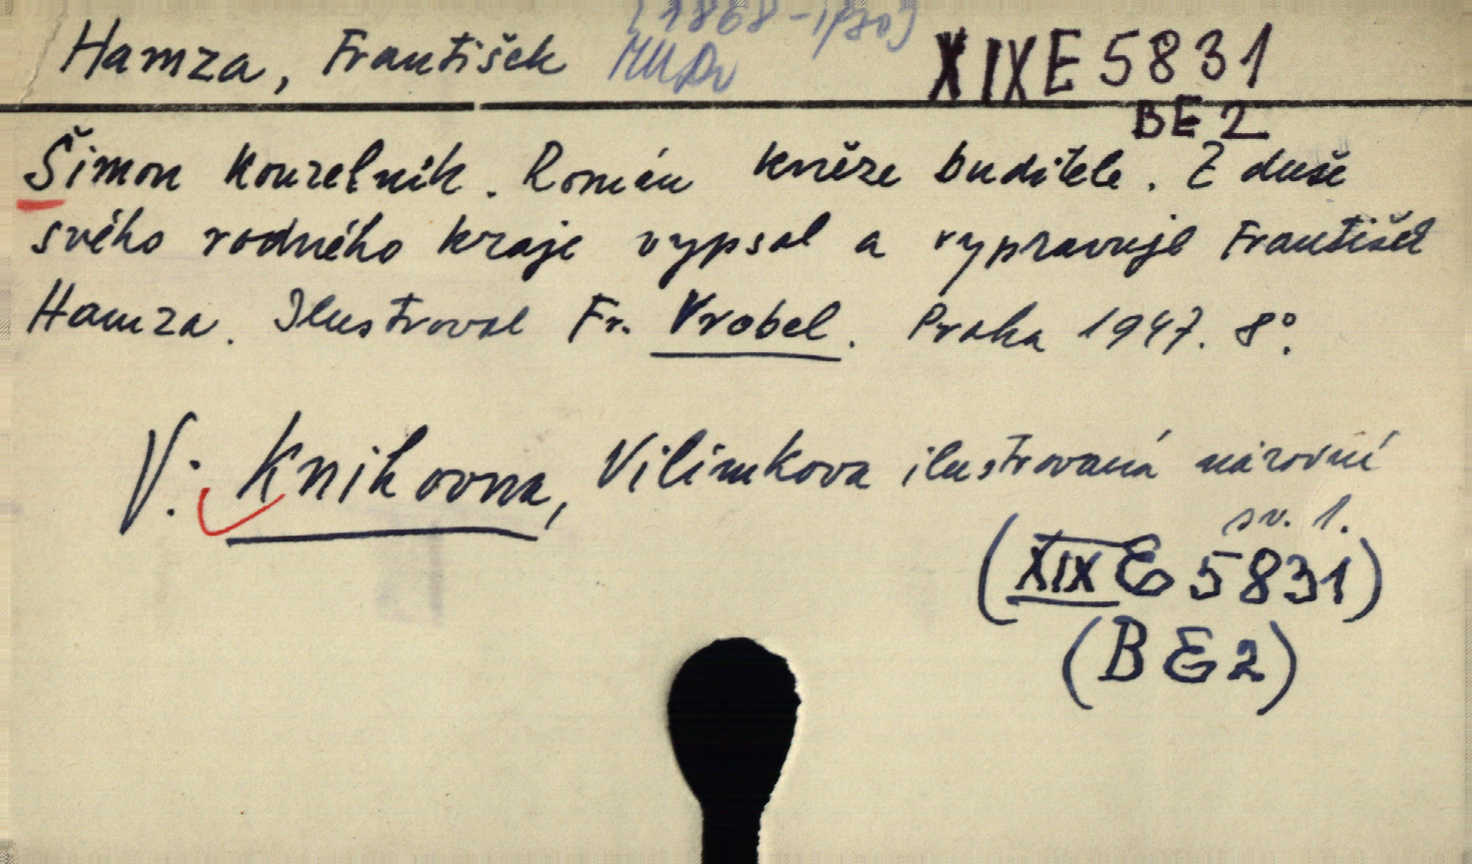 [1868-1930]
Hamza, František MUDr XIX E 5831
BE 2
Šimon Kouzelník. Román kněze buditele. Z duše
svého rodného kraje vypsal a vypravuje František
Hamza. Ilustroval Fr. Vrobel. Praha 1947. 8°.
V: Knihovna, Vilímkova ilustrovaná národní
sv. 1.
(XIX E 5831)
(B E 2)